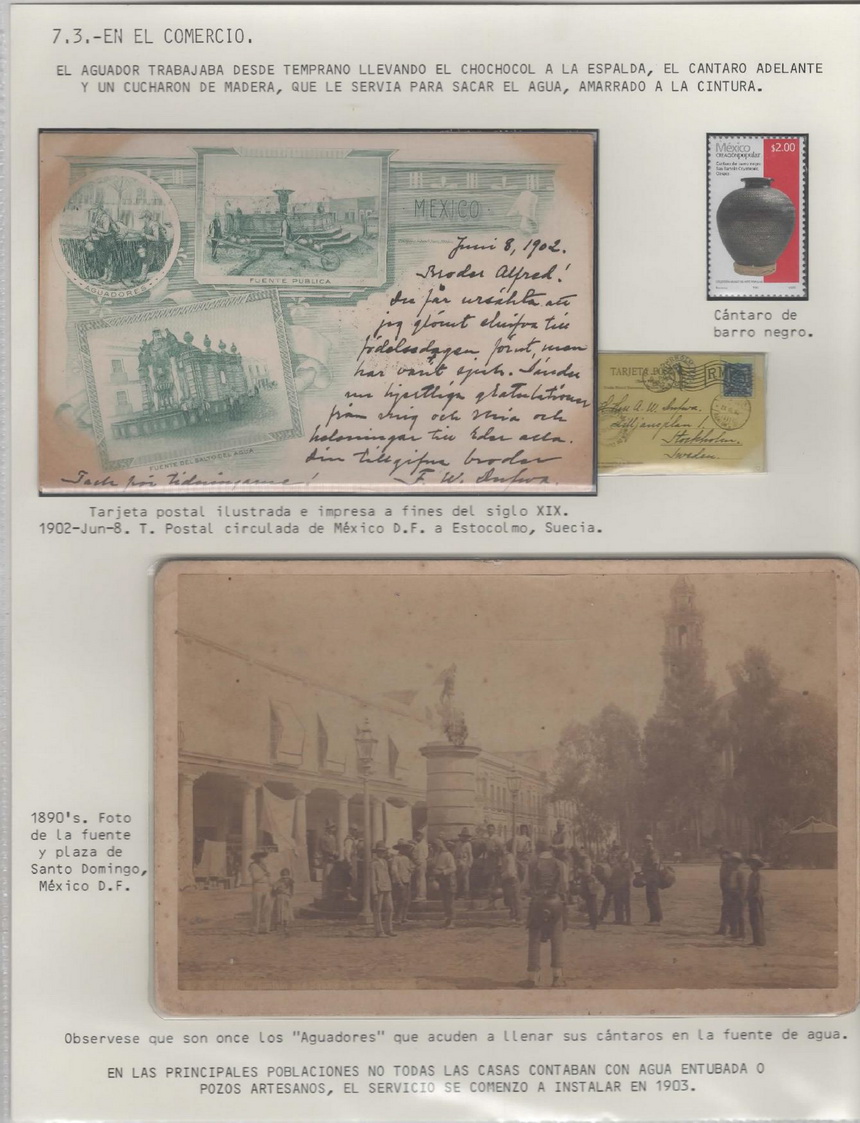 7.3.-EN EL COMERCIO.
EL AGUADOR TRABAJABA DESDE TEMPRANO LLEVANDO EL CHOCHOCOL A LA ESPALDA, EL CANTARO ADELANTE
Y UN CUCHARON DE MADERA, QUE LE SERVIA PARA SACAR EL AGUA, AMARRADO A LA CINTURA.
AGUADORES
FUENTE PUBLICA
MEXICO
FUENTE DEL SALTO EL AGUA
Juni 8, 1902.
Broder Alfred!
Du får ursäkta att
jag glömt skrifva till
födelsedagen förut men
har varit
från mig och Mia och
helsningar till Eder alla.
din tillgifna broder
F. W.
Tack för tidningarne!
México
creación popular
$2.00
Cántaro de
barro negro.
TARJETA
A. W.
Stockholm.
Sweden.
Tarjeta postal ilustrada e impresa a fines del siglo XIX.
1902-Jun-8. T. Postal circulada de México D.F. a Estocolmo, Suecia.
1890's. Foto
de la fuente
y plaza de
Santo Domingo,
México D.F.
Observese que son once los "Aguadores" que acuden a llenar sus cántaros en la fuente de agua.
EN LAS PRINCIPALES POBLACIONES NO TODAS LAS CASAS CONTABAN CON AGUA ENTUBADA O
POZOS ARTESANOS, EL SERVICIO SE COMENZO A INSTALAR EN 1903.